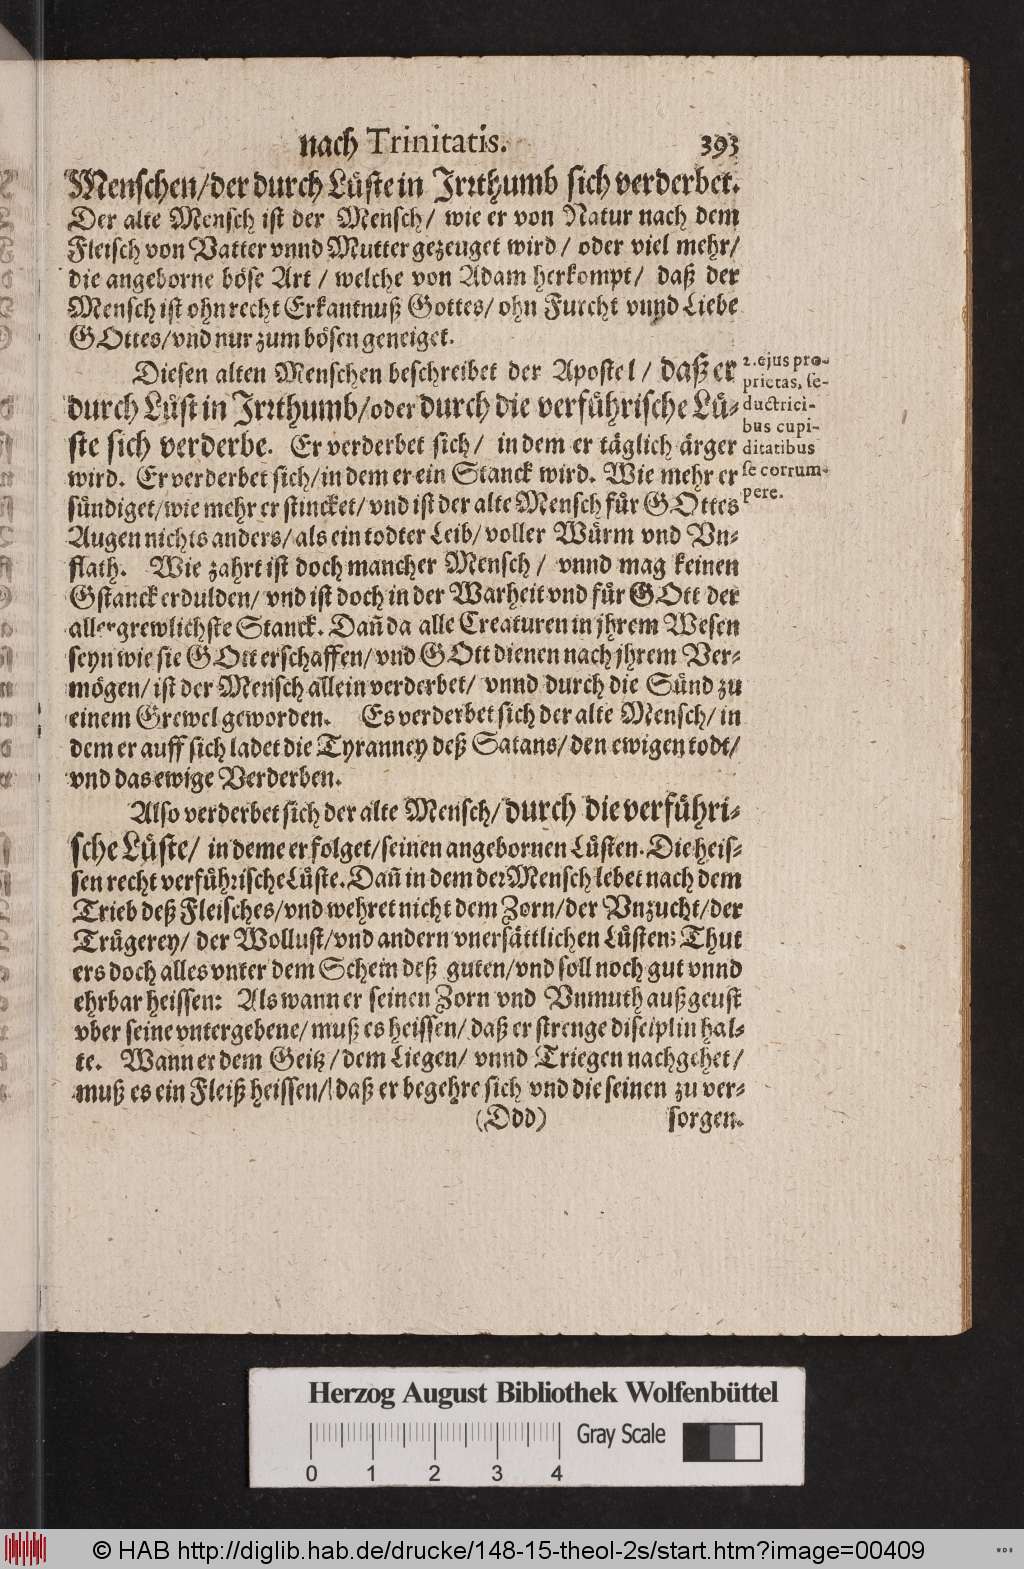 nach Trinitatis. 393
Menschen/der durch Lüste in Irrthumb sich verderbet.
Der alte Mensch ist der Mensch/ wie er von Natur nach dem
Fleisch von Vatter vnnd Mutter gezeuget wird/ oder viel mehr/
die angeborne böse Art/ welche von Adam herkompt/ daß der
Mensch ist ohn recht Erkantnuß Gottes/ ohn Furcht vnnd Liebe
GOttes/vnd nur zum bösen geneiget.
Diesen alten Menschen beschreibet der Apostel/ daß er
durch Lüst in Irrthumb/oder durch die verführische Lü-
ste sich verderbe. Er verderbet sich/ in dem er täglich ärger
wird. Er verderbet sich/in dem er ein Stanck wird. Wie mehr er
sündiget/wie mehr er stincket/ vnd ist der alte Mensch für GOttes
Augen nichts anders/ als ein todter Leib/ voller Würm vnd Vn-
flath. Wie zahrt ist doch mancher Mensch/ vnnd mag keinen
Gstanck erdulden/ vnd ist doch in der Warheit vnd für GOtt der
allergrewlichste Stanck. Dañ da alle Creaturen in jhrem Wesen
seyn wie sie GOtt erschaffen/ vnd GOtt dienen nach jhrem Ver-
mögen/ ist der Mensch allein verderbet/ vnnd durch die Sünd zu
einem Grewel geworden. Es verderbet sich der alte Mensch/ in
dem er auff sich ladet die Tyranney deß Satans/ den ewigen todt/
vnd das ewige Verderben.
Also verderbet sich der alte Mensch/ durch die verführi-
sche Lüste/ in deme er folget/seinen angebornen Lüsten. Die heis-
sen recht verführische Lüste. Dañ in dem der Mensch lebet nach dem
Trieb deß Fleisches/vnd wehret nicht dem Zorn/der Vnzucht/der
Trügerey/ der Wollust/vnd andern vnersättlichen Lüsten; Thut
ers doch alles vnter dem Schein deß guten/vnd soll noch gut vnnd
ehrbar heissen: Als wann er seinen Zorn vnd Vnmuth außgeust
vber seine vntergebene/ muß es heissen/ daß er strenge disciplin hal-
te. Wann er dem Geitz/ dem Liegen/ vnnd Triegen nachgehet/
muß es ein Fleiß heissen/ daß er begehre sich vnd die seinen zu ver-
(Ddd) sorgen.
2. ejus pro-
prietas, se-
ductrici-
bus cupi-
ditatibus
se corrum-
pere.
Herzog August Bibliothek Wolfenbüttel
Gray Scale
0 1 2 3 4
© HAB http://diglib.hab.de/drucke/148-15-theol-2s/start.htm?image=00409